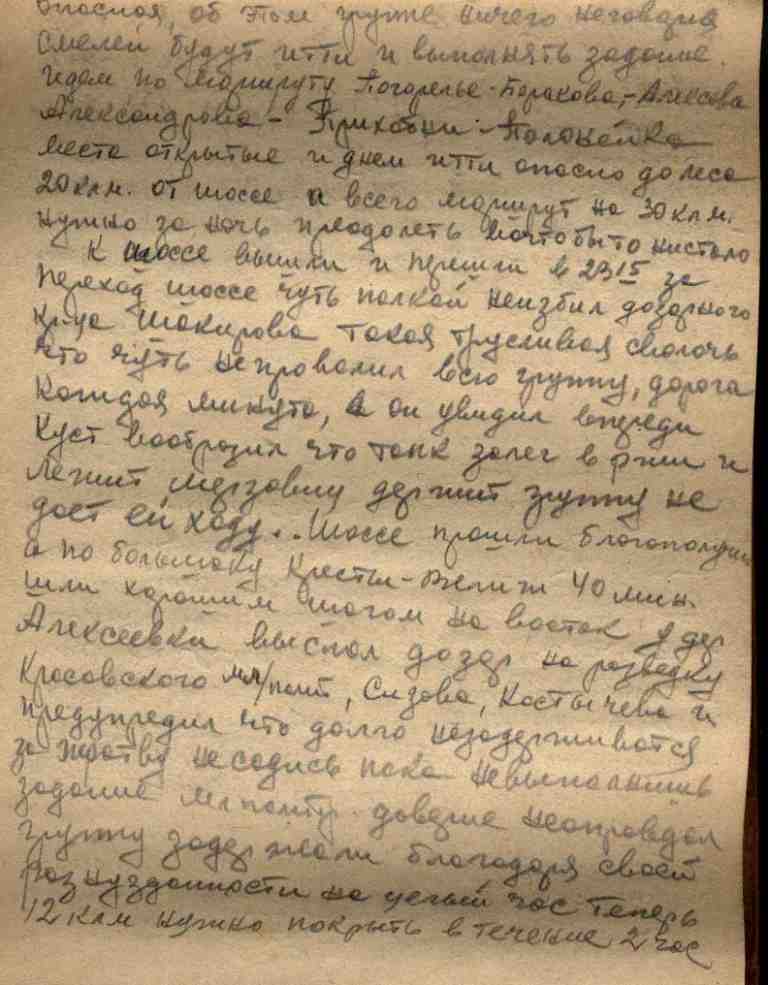 опасная, об этом группе ничего неговорил
смелей будут итти и выполнять задание.
идем по маршруту Погорелье-Боракова,-Алексеева
Александрова - Приховки - Полоneйка
места открытые и днем итти опасно до леса
20 клм. от шоссе а всего маршрут на 30 клм.
нужно за ночь преодолеть вочтобыто нистало
К шоссе вышли и прешли в 2315 за
переход шоссе чуть палкой неизбил дозорного
кр-ца Шакирова такая трусливая сволочь
что чуть непровалил всю группу, дорога
каждая минута, а он увидил впереди
куст вообразил что танк залег в ржи и
лежит мерзавец держит группу не
дает ей ходу.. Шоссе прошли благополучно
а по большаку Кресты-Велиж 40 мин.
шли хорошим шагом на восток у дер
Алексеевки выслал дозор на разведку
Красовского мл/полит, Сизова, Костычева и
предупредил что долго незадерживатся
за жратву несадись пока невыполнишь
задание мл политр. доверие неоправдал
группу задержали благодаря своей
разнузданности на целый час теперь
12 клм нужно покрыть в течение 2 час